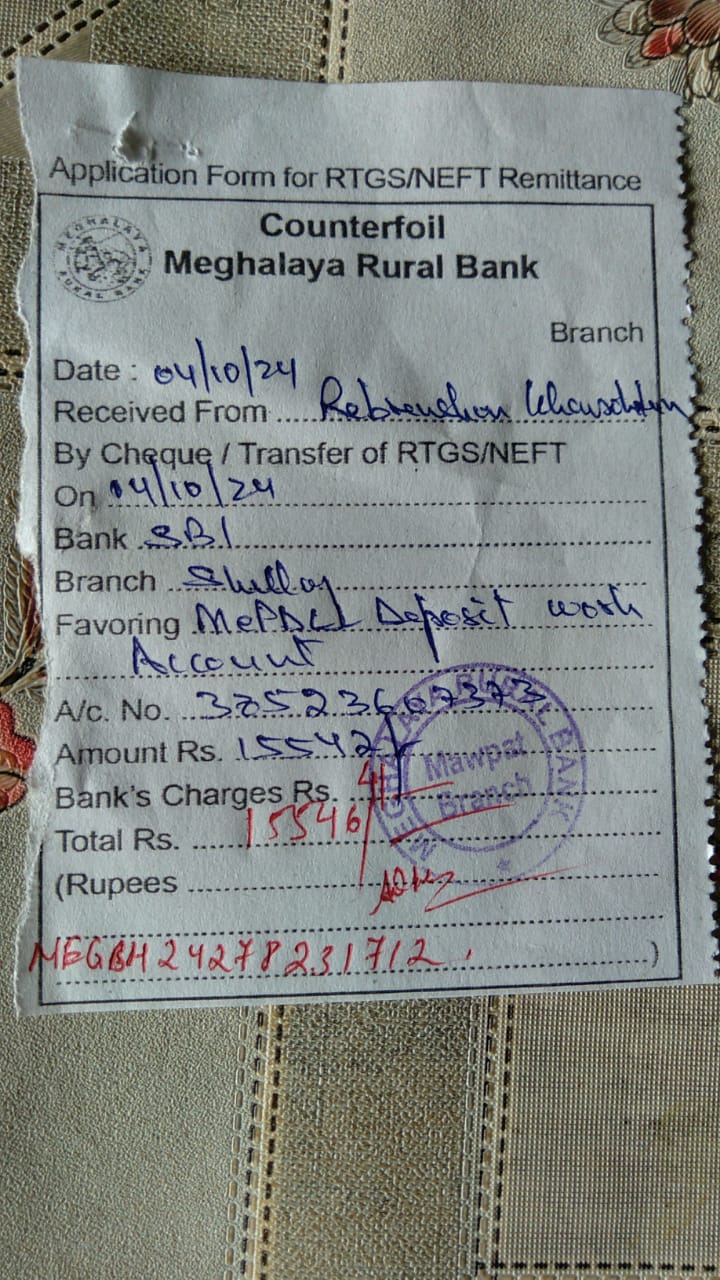 Application Form for RTGS/NEFT Remittance
MEGHALAYA RURAL BANK
Counterfoil
Meghalaya Rural Bank
Branch
Date : 04/10/24
Received From ....
By Cheque / Transfer of RTGS/NEFT
On 04/10/24
Bank SBI
Branch Shillong
Favoring MePDCL Deposit work
Account
A/c. No.
Amount Rs. 15542/-
MEGHALAYA RURAL BANK
Mawpat
Branch
Bank's Charges Rs. 4/-
Total Rs. 15546/-
(Rupees
MEGBH24278231712 )